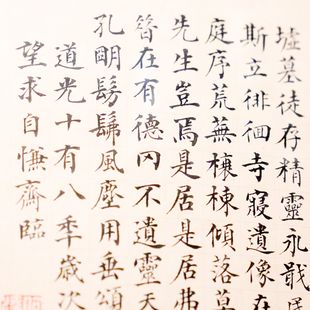 墟墓徒存精靈永戢民
斯立徘徊寺寢遺像在
庭序荒蕪榱棟傾落草
先生豈焉是居是居弗
昔在有德罔不遺靈天
孔明髣髴風塵用垂頌
道光十有八秊歲次
望求自慊齋臨